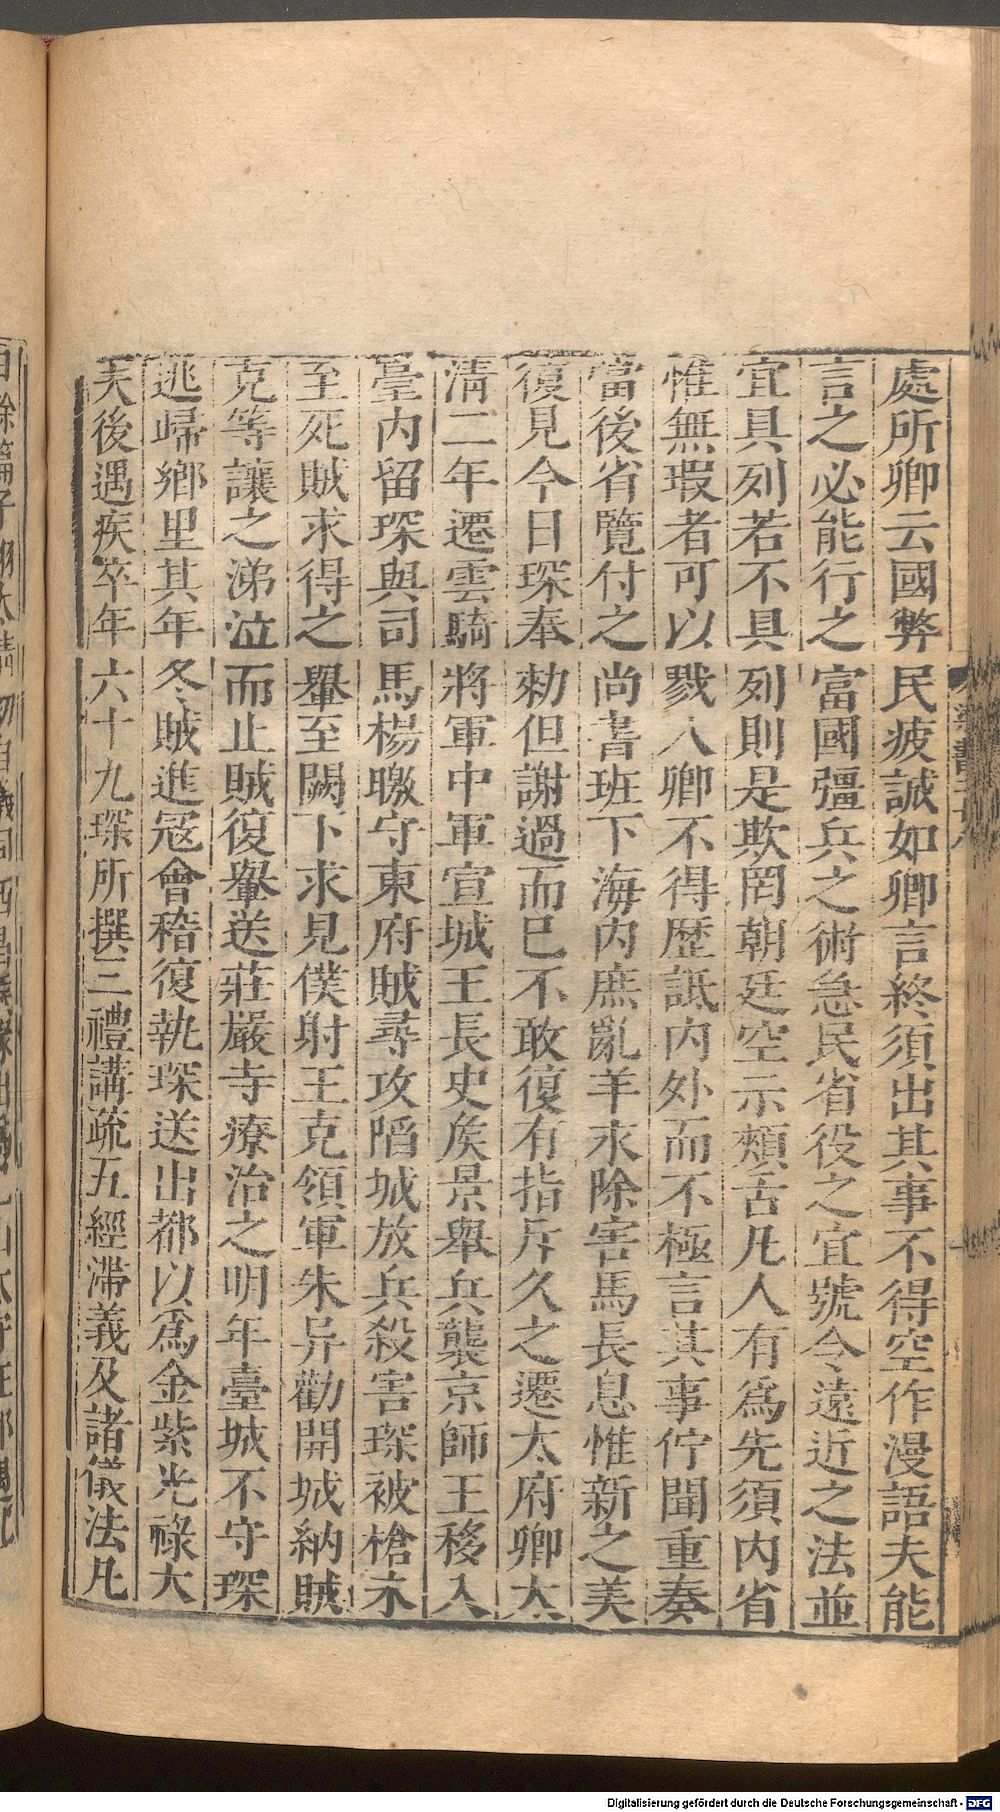 處所卿云國弊民疲誠如卿言終須出其事不得空作漫語夫能
言之必能行之富國彊兵之術急民省役之宜號令遠近之法並
宜具列若不具列則是欺罔朝廷空示頰舌凡人有爲先須內省
惟無瑕者可以戮人卿不得歷詆內外而不極言其事佇聞重奏
當後省覽付之尚書班下海內庶亂羊永除害馬長息惟新之美
復見今日琛奉勑但謝過而已不敢復有指斥久之遷太府卿太
淸二年遷雲騎將軍中軍宣城王長史矦景舉兵襲京師王移入
臺內留琛與司馬楊曒守東府賊尋攻陷城放兵殺害琛被槍未
至死賊求得之轝至闕下求見僕射王克領軍朱异勸開城納賊
克等讓之涕泣而止賊復轝送莊嚴寺療治之明年臺城不守琛
逃歸鄉里其年冬賊進冦會稽復執琛送出都以爲金紫光祿大
夫後遇疾卒年六十九琛所撰三禮講疏五經滯義及諸儀法凡
Digitalisierung gefördert durch die Deutsche Forschungsgemeinschaft - DFG